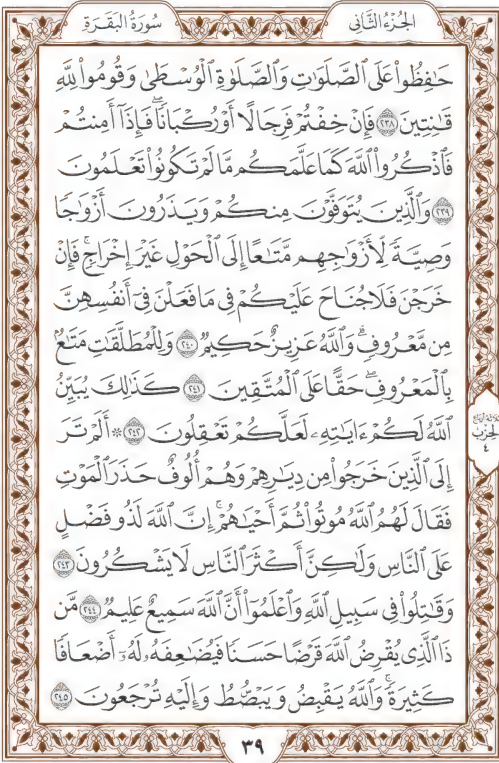 الجُزْءُ الثَّانِي
سُورَةُ البَقَرَةِ
حَٰفِظُوا۟ عَلَى ٱلصَّلَوَٰتِ وَٱلصَّلَوٰةِ ٱلْوُسْطَىٰ وَقُومُوا۟ لِلَّهِ
قَٰنِتِينَ ۝٢٣٨ فَإِنْ خِفْتُمْ فَرِجَالًا أَوْ رُكْبَانًا ۖ فَإِذَآ أَمِنتُمْ
فَٱذْكُرُوا۟ ٱللَّهَ كَمَا عَلَّمَكُم مَّا لَمْ تَكُونُوا۟ تَعْلَمُونَ
۝٢٣٩ وَٱلَّذِينَ يُتَوَفَّوْنَ مِنكُمْ وَيَذَرُونَ أَزْوَٰجًا
وَصِيَّةً لِّأَزْوَٰجِهِم مَّتَٰعًا إِلَى ٱلْحَوْلِ غَيْرَ إِخْرَاجٍ ۚ فَإِنْ
خَرَجْنَ فَلَا جُنَاحَ عَلَيْكُمْ فِى مَا فَعَلْنَ فِىٓ أَنفُسِهِنَّ
مِن مَّعْرُوفٍ ۗ وَٱللَّهُ عَزِيزٌ حَكِيمٌ ۝٢٤٠ وَلِلْمُطَلَّقَٰتِ مَتَٰعٌۢ
بِٱلْمَعْرُوفِ ۖ حَقًّا عَلَى ٱلْمُتَّقِينَ ۝٢٤١ كَذَٰلِكَ يُبَيِّنُ
ٱللَّهُ لَكُمْ ءَايَٰتِهِۦ لَعَلَّكُمْ تَعْقِلُونَ ۝٢٤٢ ۞ أَلَمْ تَرَ
إِلَى ٱلَّذِينَ خَرَجُوا۟ مِن دِيَٰرِهِمْ وَهُمْ أُلُوفٌ حَذَرَ ٱلْمَوْتِ
فَقَالَ لَهُمُ ٱللَّهُ مُوتُوا۟ ثُمَّ أَحْيَٰهُمْ ۚ إِنَّ ٱللَّهَ لَذُو فَضْلٍ
عَلَى ٱلنَّاسِ وَلَٰكِنَّ أَكْثَرَ ٱلنَّاسِ لَا يَشْكُرُونَ ۝٢٤٣
وَقَٰتِلُوا۟ فِى سَبِيلِ ٱللَّهِ وَٱعْلَمُوٓا۟ أَنَّ ٱللَّهَ سَمِيعٌ عَلِيمٌ ۝٢٤٤ مَّن
ذَا ٱلَّذِى يُقْرِضُ ٱللَّهَ قَرْضًا حَسَنًا فَيُضَٰعِفَهُۥ لَهُۥٓ أَضْعَافًا
كَثِيرَةً ۚ وَٱللَّهُ يَقْبِضُ وَيَبْصُۜطُ وَإِلَيْهِ تُرْجَعُونَ ۝٢٤٥
الحِزْب
٤
٣٩